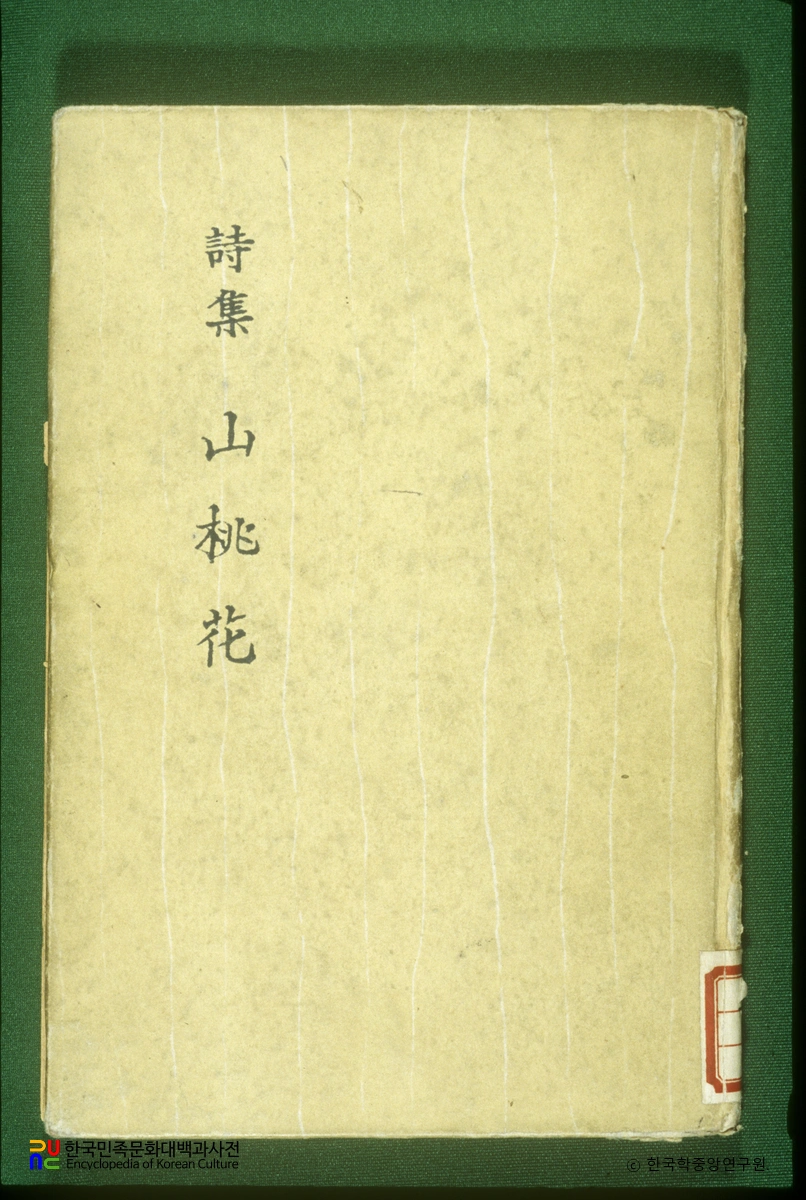 詩集 山桃花
한국민족문화대백과사전
Encyclopedia of Korean Culture
ⓒ 한국학중앙연구원